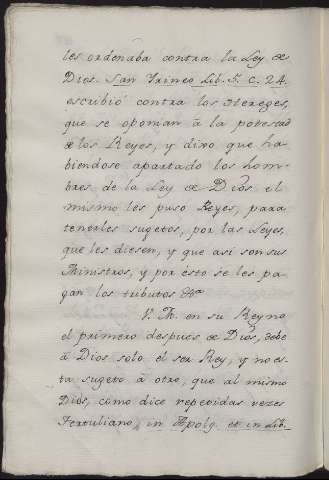 les ordenaba contra la Ley de
Dios. San Yrineo Lib. 5. C. 24.
escribió contra los Hereges,
que se oponian à la potestad
de los Reyes, y dixo que ha-
biendose apartado los hom-
bres de la Ley de Dios el
mismo les puso Reyes, para
tenerles sugetos, por las Leyes,
que les diesen, y que asi son sus
Ministros, y por esto se les pa-
gan los tributos &.a
V. M. en su Reyno
el primero despues de Dios, debe
à Dios solo el ser Rey, y no es-
ta sugeto à otro, que al mismo
Dios, como dice repetidas vezes
Tertuliano, in Apolg. et in Lib.